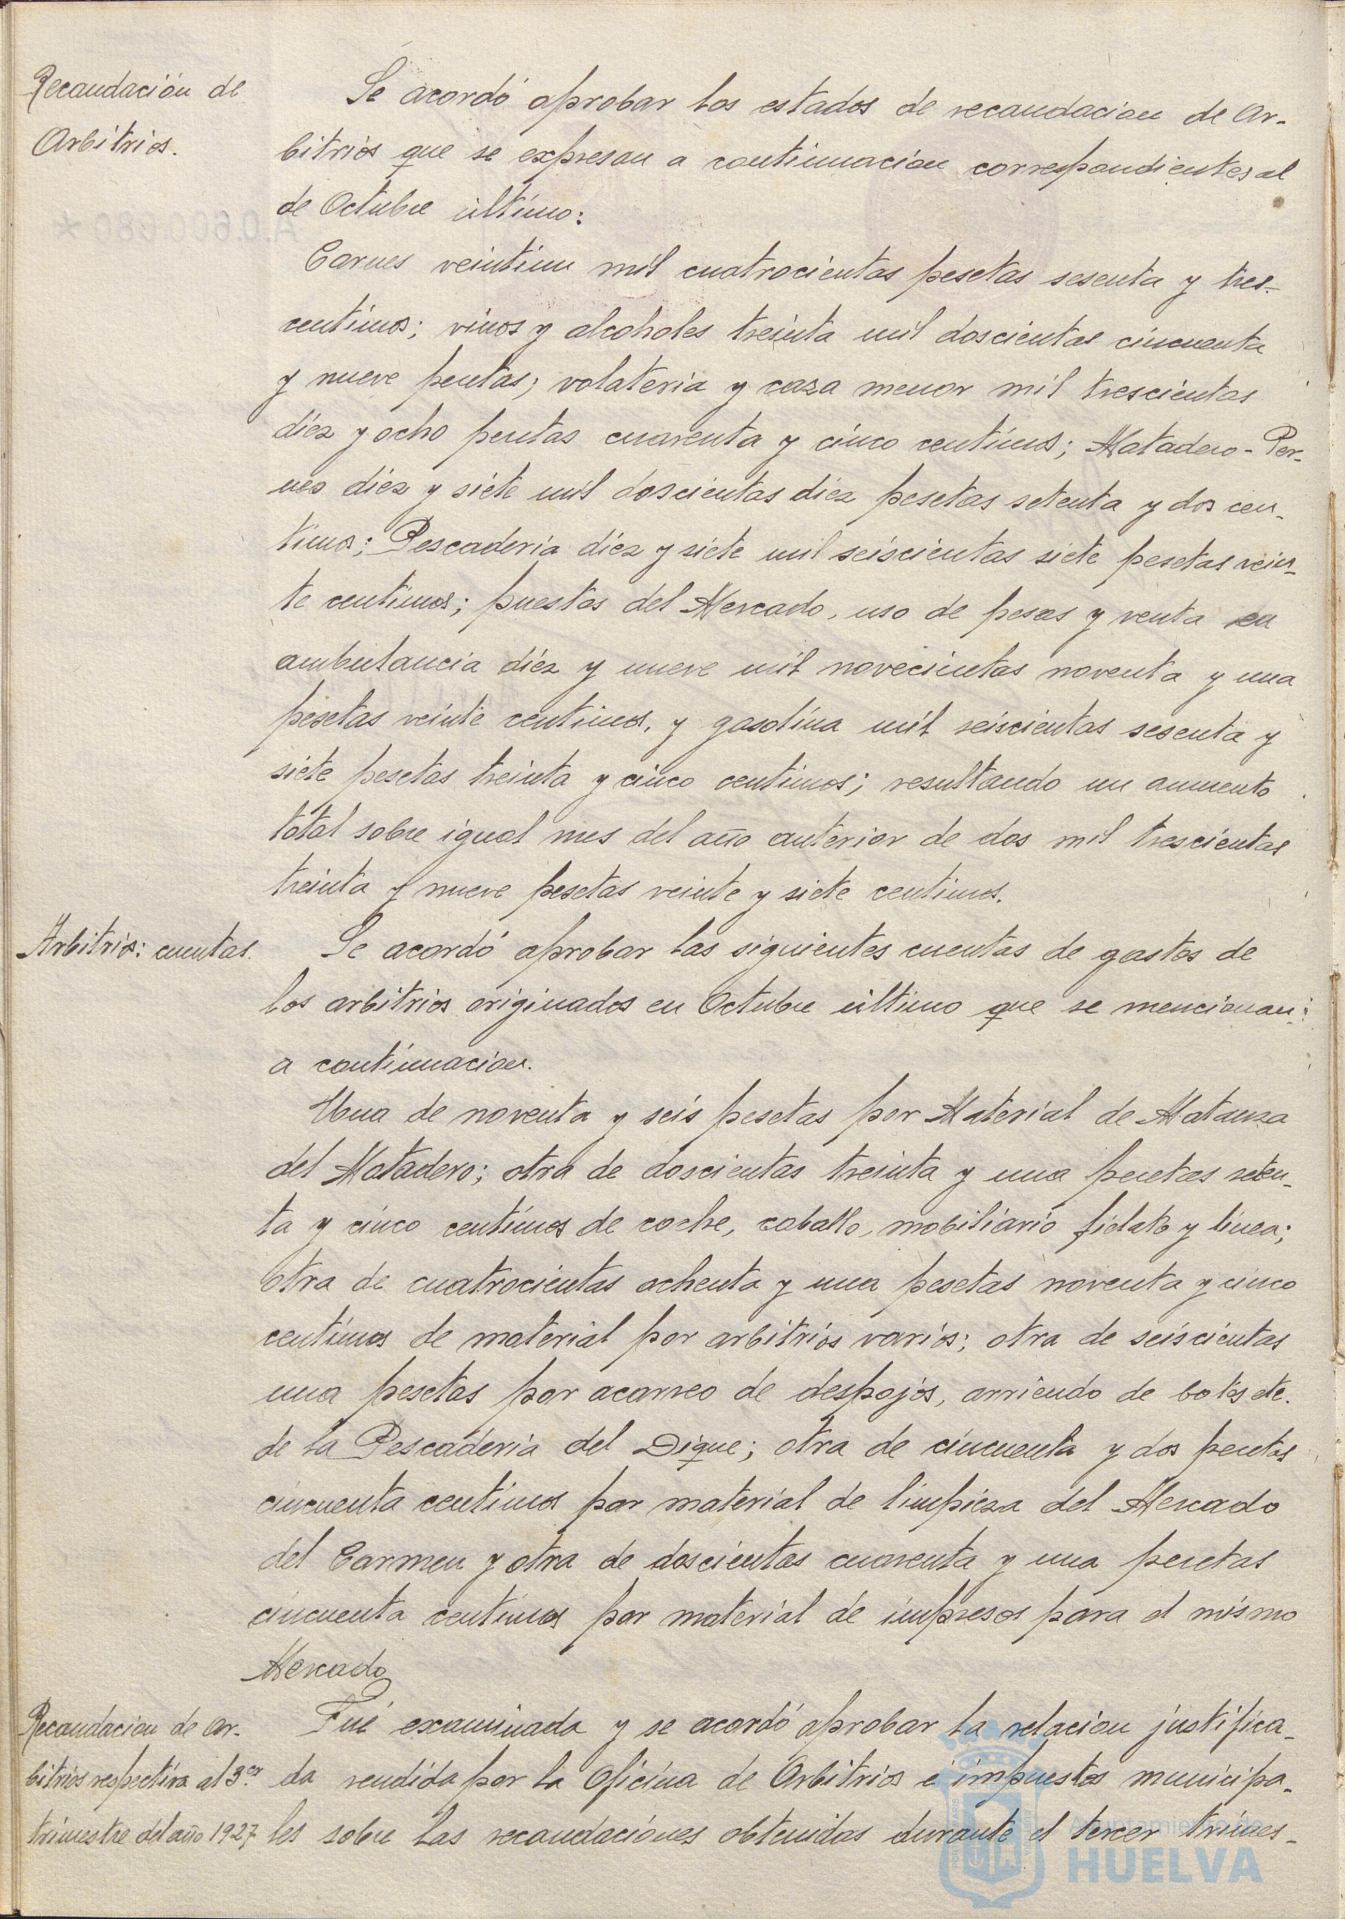 Recaudación de
Arbitrios.
Se acordó aprobar los estados de recaudacion de Ar-
bitrios que se expresan a continuacion correspondientes al
de Octubre último:
Carnes veintiun mil cuatrocientas pesetas sesenta y tres
centimos; vinos y alcoholes treinta mil doscientas cincuenta
y nueve pesetas; volateria y caza menor mil trescientas
diez y ocho pesetas cuarenta y cinco centimos; Matadero-Per-
neo diez y siete mil doscientas diez pesetas setenta y dos cen-
timos; Pescaderia diez y siete mil seiscientas siete pesetas vein-
te centimos; puestos del Mercado, uso de pesas y venta en
ambulancia diez y nueve mil novecientas noventa y una
pesetas veinte centimos, y gasolina mil seiscientas sesenta y
siete pesetas treinta y cinco centimos; resultando un aumento
total sobre igual mes del año anterior de dos mil trescientas
treinta y nueve pesetas veinte y siete centimos.
Arbitrios: cuentas.
Se acordó aprobar las siguientes cuentas de gastos de
los arbitrios originados en Octubre último que se mencionan
a continuacion.
Una de noventa y seis pesetas por Material de Matanza
del Matadero; otra de doscientas treinta y una pesetas seten-
ta y cinco centimos de coche, caballo, mobiliario fielato y linea;
otra de cuatrocientas ochenta y una pesetas noventa y cinco
centimos de material por arbitrios varios; otra de seiscientas
una pesetas por acarreo de despojos, arriendo de botes etc.
de la Pescaderia del Dique; otra de cincuenta y dos pesetas
cincuenta centimos por material de limpieza del Mercado
del Carmen y otra de doscientas cuarenta y una pesetas
cincuenta centimos por material de impresos para el mismo
Mercado
Recaudacion de Ar-
bitrios respectiva al 3er
trimestre del año 1927
Fué examinada y se acordó aprobar la relacion justifica-
da rendida por la Oficina de Arbitrios e impuestos municipa-
les sobre las recaudaciones obtenidas durante el tercer trimes-
Ayuntamiento de
HUELVA